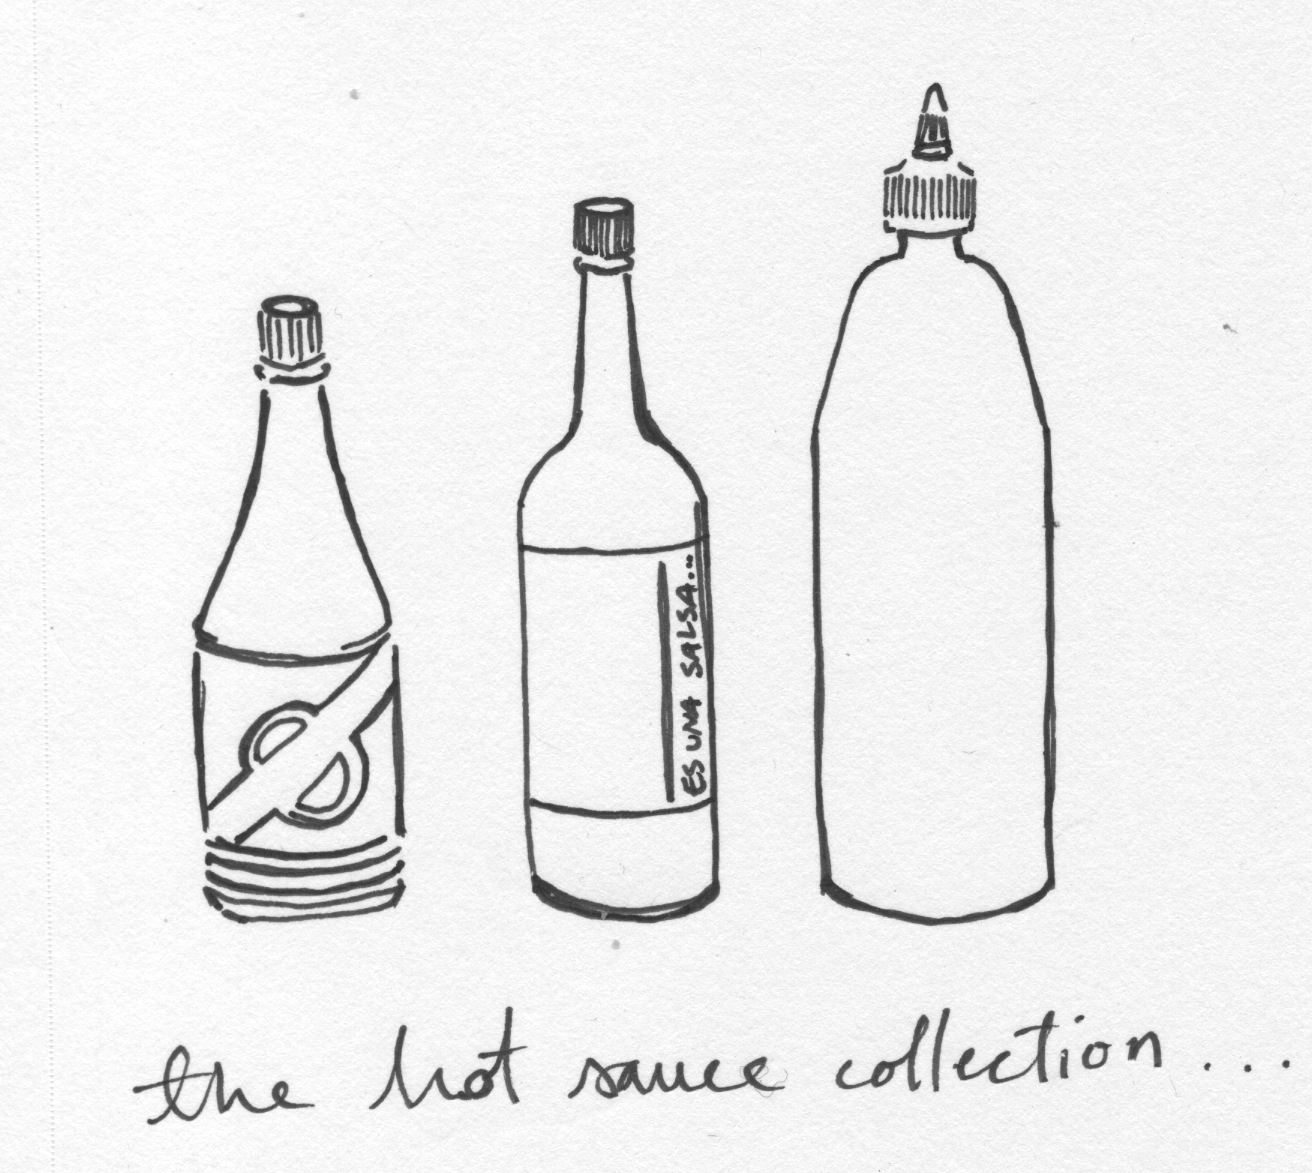 ES UNA SALSA...
the hot sauce collection...